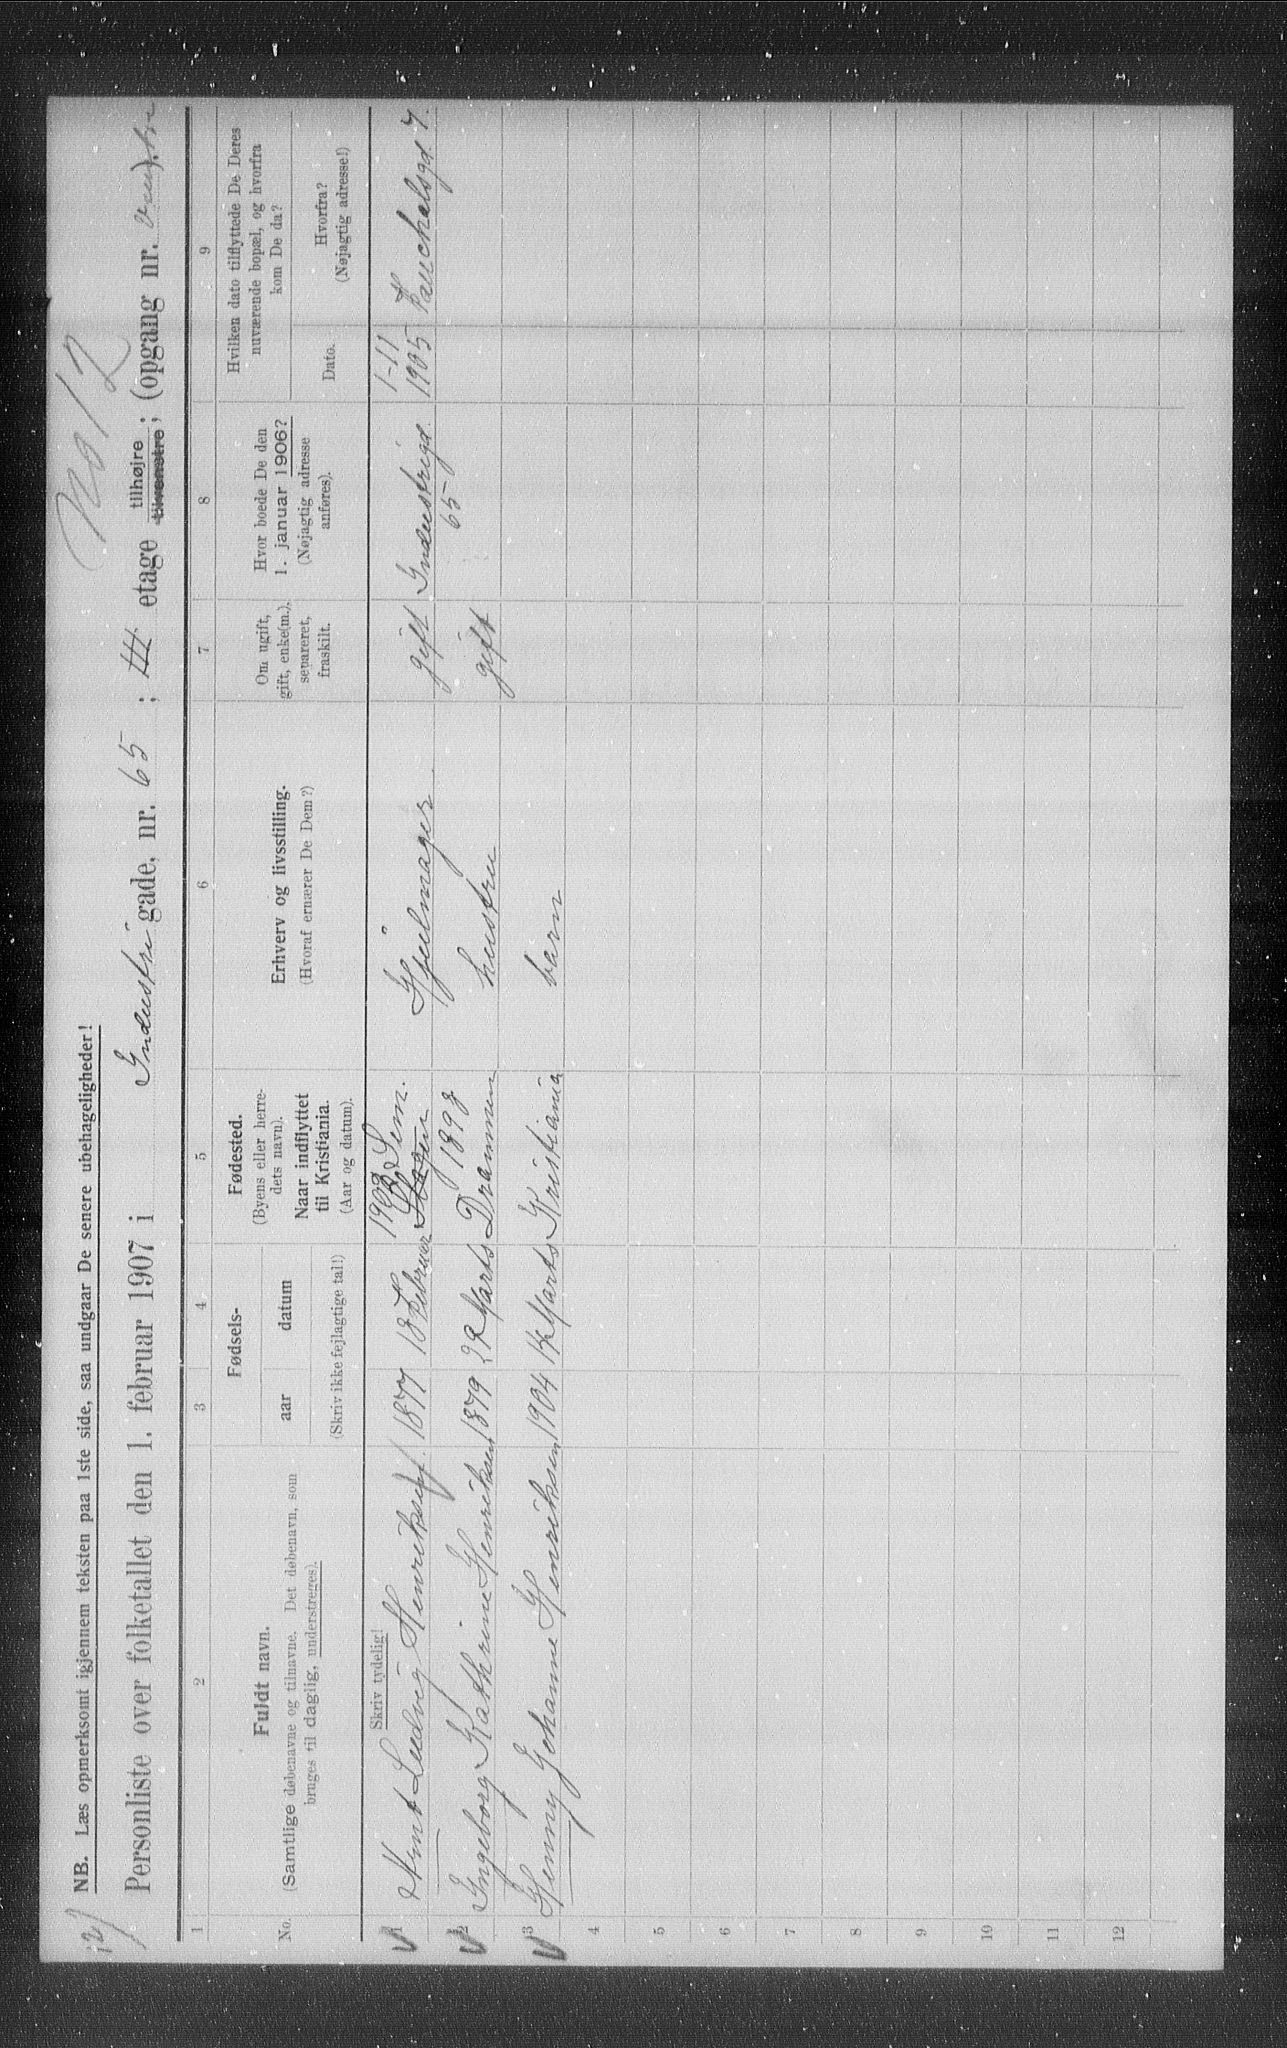 12)
No 12
NB. Læs opmerksomt igjennem teksten paa 1ste side, saa undgaar De senere ubehageligheder!
Personliste over folketallet den 1. februar 1907 i Industri gade, nr. 65 ; III etage tilhøjre tilvenstre ; (opgang nr. ).
1 2 3 4 5 6 7 8 9
No. Fuldt navn. (Samtlige døbenavne og tilnavne. Det døbenavn, som bruges til daglig, understreges).
Fødsels- aar datum (Skriv ikke fejlagtige tal!)
Fødested. (Byens eller herredets navn). Naar indflyttet til Kristiania. (Aar og datum).
Erhverv og livsstilling. (Hvoraf ernærer De Dem?)
Om ugift, gift, enke(m.), separeret, fraskilt.
Hvor boede De den 1. januar 1906? (Nøjagtig adresse anføres).
Hvilken dato tilflyttede De Deres nuværende bopæl, og hvorfra kom De da?
Dato. Hvorfra? (Nøjagtig adresse!)
Skriv tydelig!
1 Ludvig Henriksen 1877 18 Februar 1902 Sem. Hjulmager gift Industrigd. 65 1-11 1905 7.
2 Ingeborg Kathrine Henriksen 1879 Marts 1898 Drammen hustru gift
3 Henny Johanne Henriksen 1904 14 Marts Kristiania barn
4
5
6
7
8
9
10
11
12